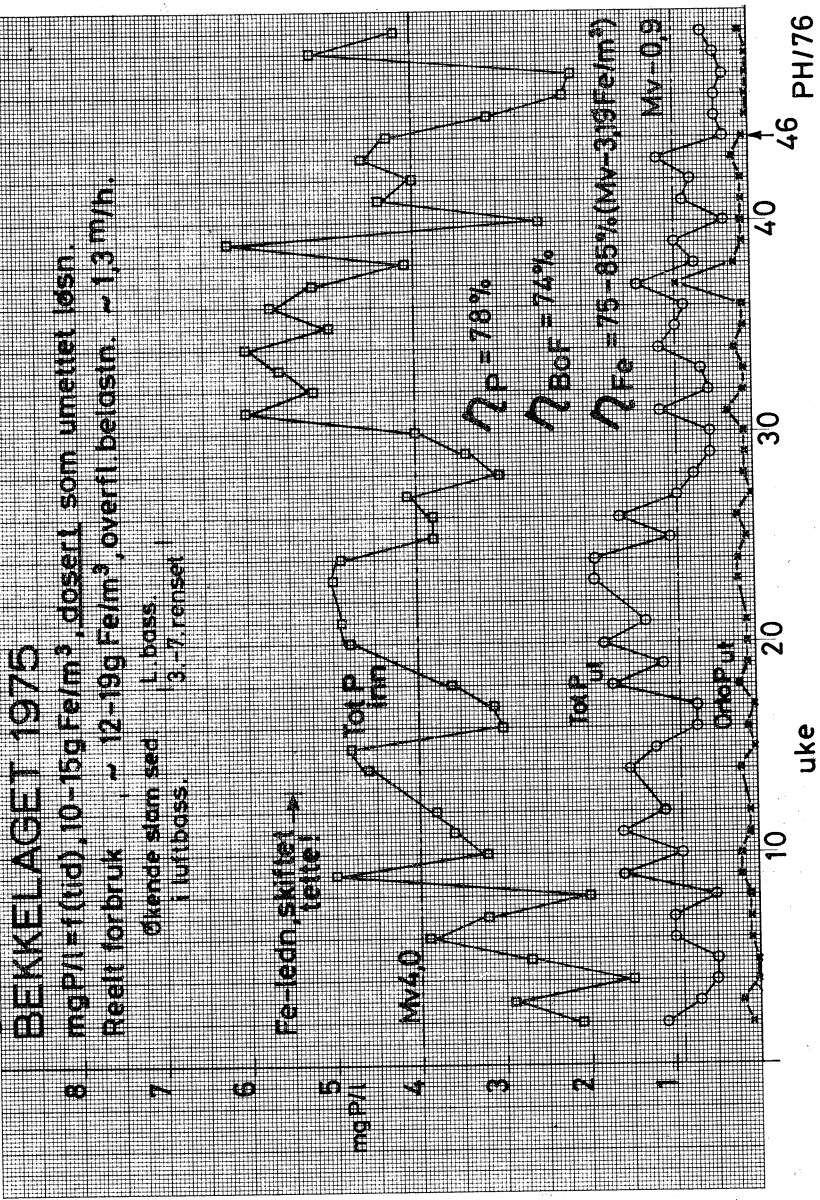 BEKKELAGET 1975
mgP/l=f(tid),10-15g Fe/m³, dosert som umettet løsn.
Reelt forbruk ~ 12-19g Fe/m³, overfl. belastn. ~1,3 m/h.
Økende slam sed. L. bass.
i luftbass. 3.-7. renset
Fe-ledn, skiftet
tette!
Mv4,0
Tot P
inn
ηP = 78%
ηBoF = 74%
ηFe = 75-85% (Mv-3,19 Fe/m³)
Tot P ut
Mv-0,9
OrtoP ut
8
7
6
5
mgP/l
4
3
2
1
10
20
30
40
46
uke
PH/76